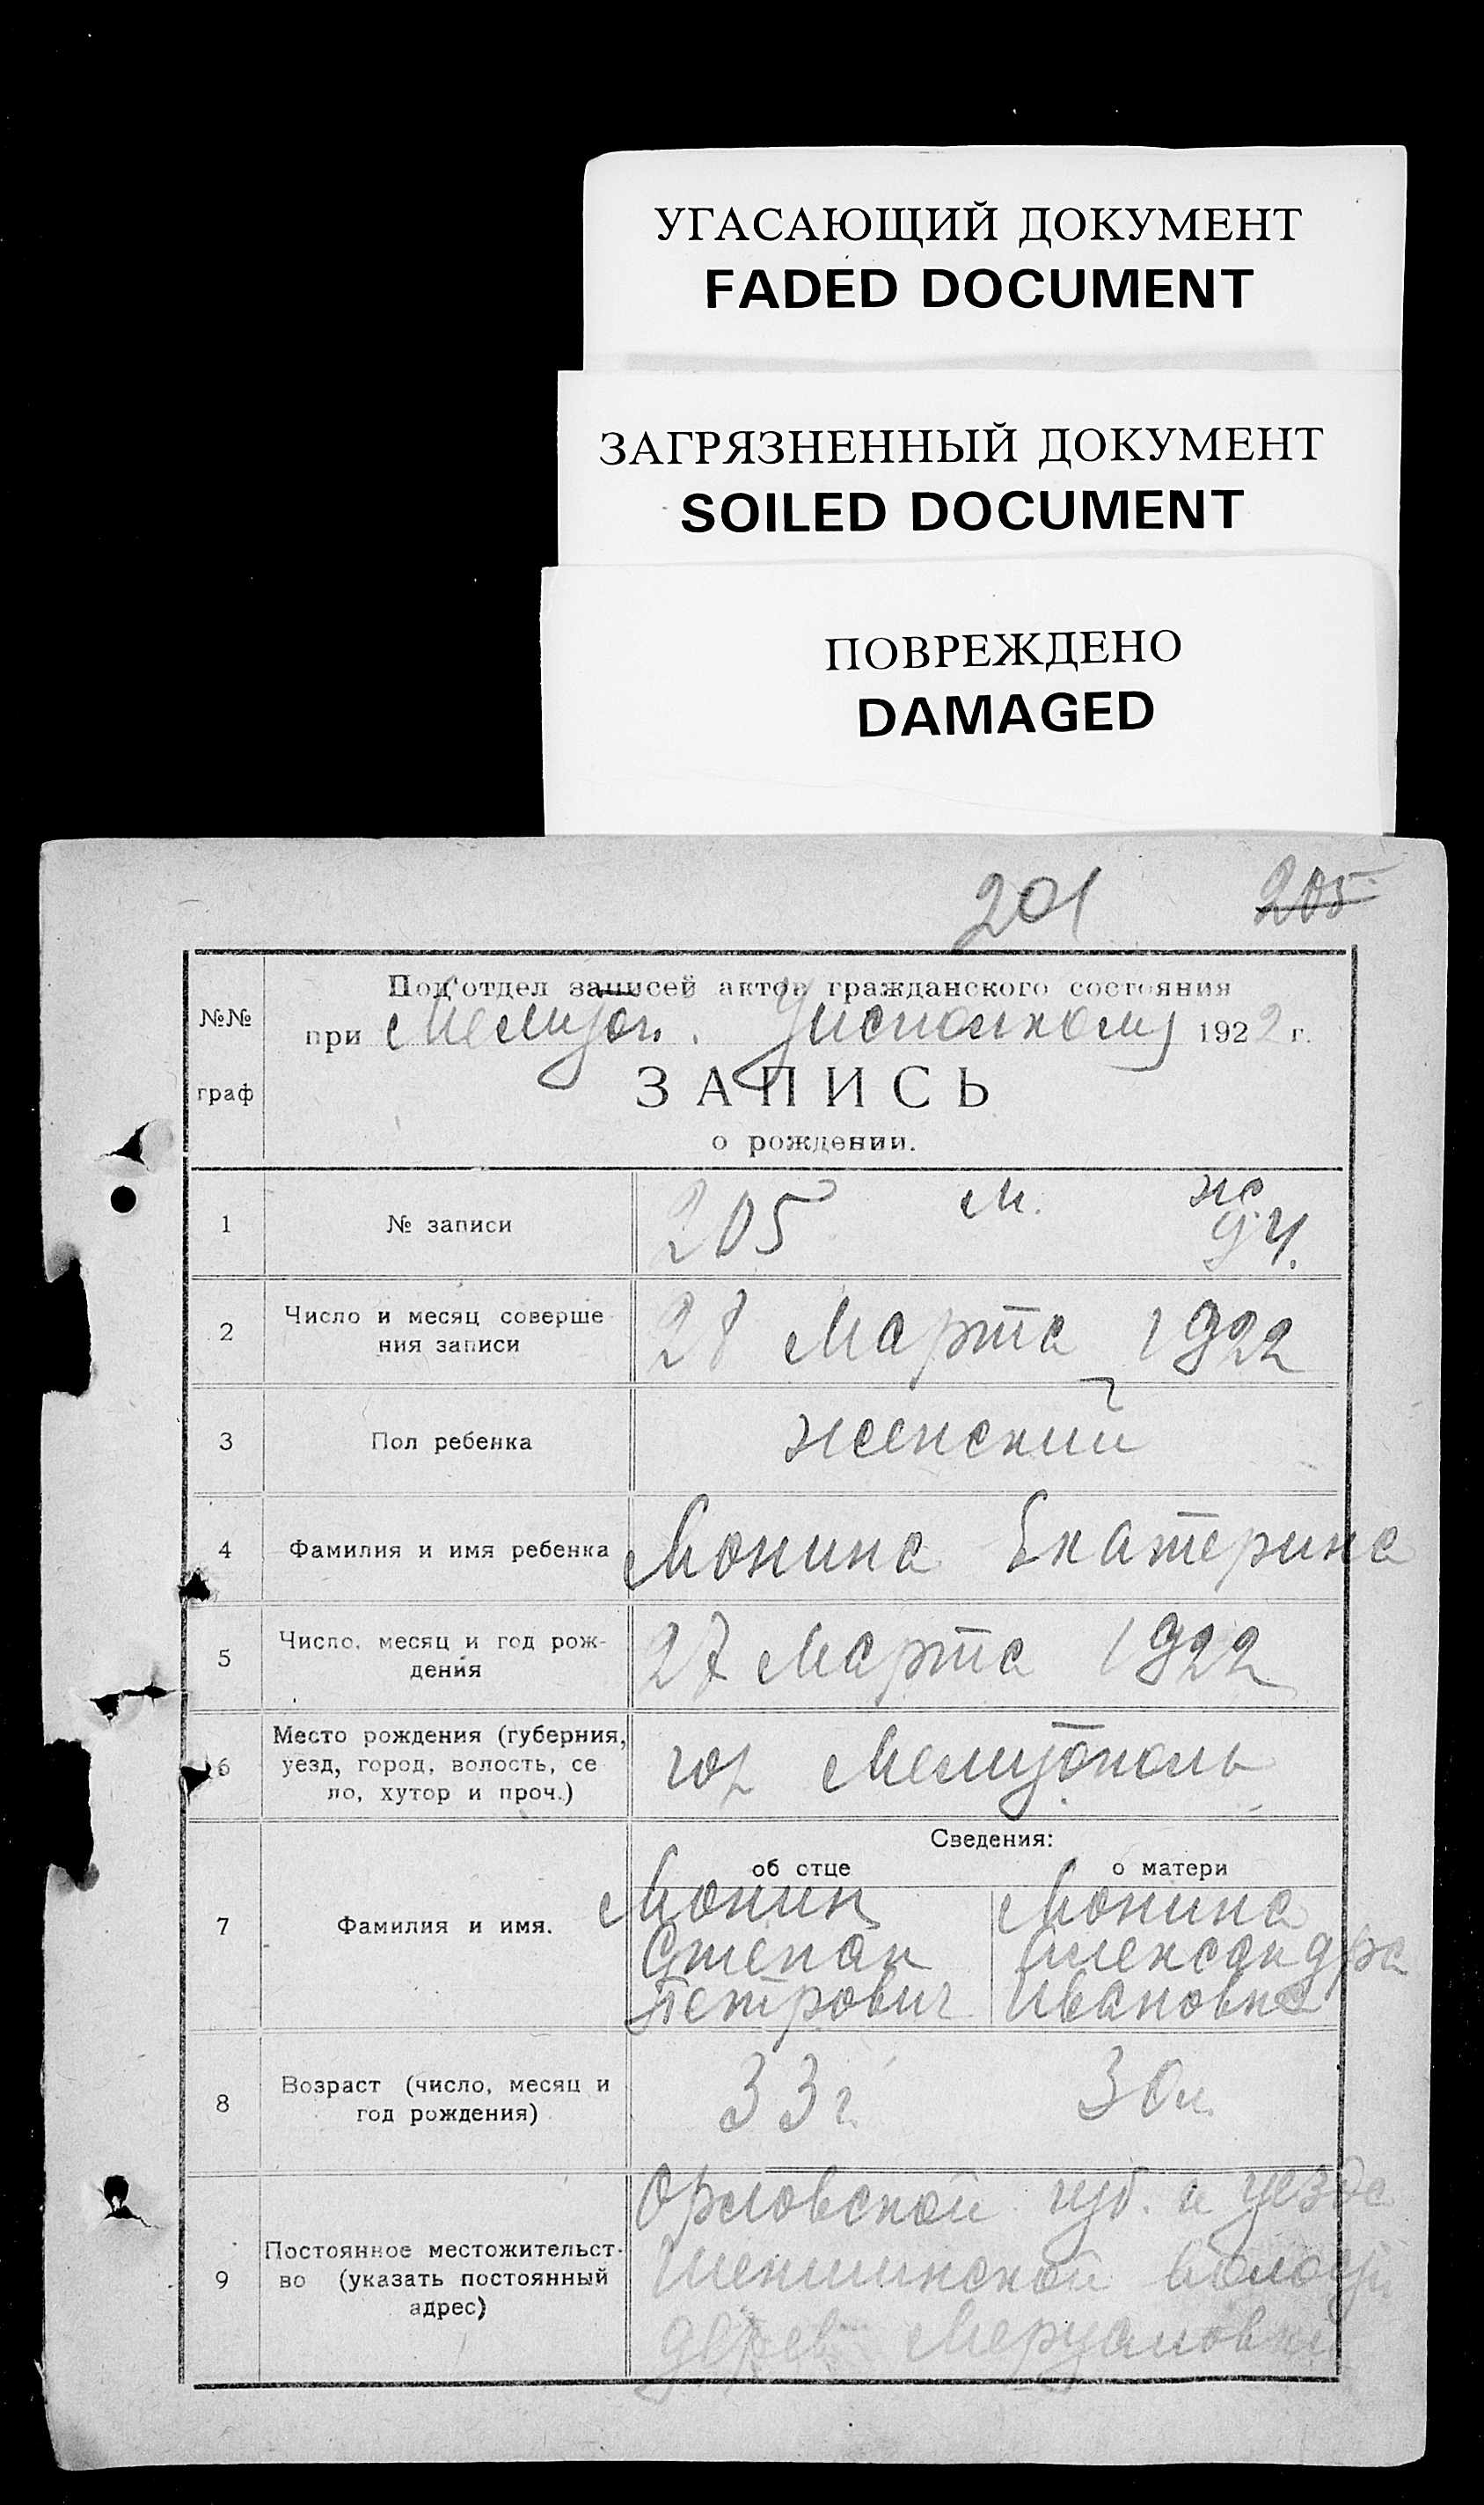 УГАСАЮЩИЙ ДОКУМЕНТ
FADED DOCUMENT
ЗАГРЯЗНЕННЫЙ ДОКУМЕНТ
SOILED DOCUMENT
ПОВРЕЖДЕНО
DAMAGED
201 205
№№ граф
Под'отдел записей актов гражданского состояния
при Мелитоп. Уисполкому 1922 г.
ЗАПИСЬ
о рождении.
1 № записи 205 м. ж 94.
2 Число и месяц соверше
ния записи 28 Марта 1922
3 Пол ребенка женский
4 Фамилия и имя ребенка Монина Екатерина
5 Число, месяц и год рож-
дения 27 Марта 1922
6 Место рождения (губерния,
уезд, город, волость, се
ло, хутор и проч.) гор Мелитополь
Сведения:
об отце о матери
7 Фамилия и имя. Монин Монина
Степан Александра
Петрович Ивановна
8 Возраст (число, месяц и
год рождения) 33 г. 30 л.
9 Постоянное местожительст-
во (указать постоянный
адрес) Орловской губ. и уезда
волости
дерев